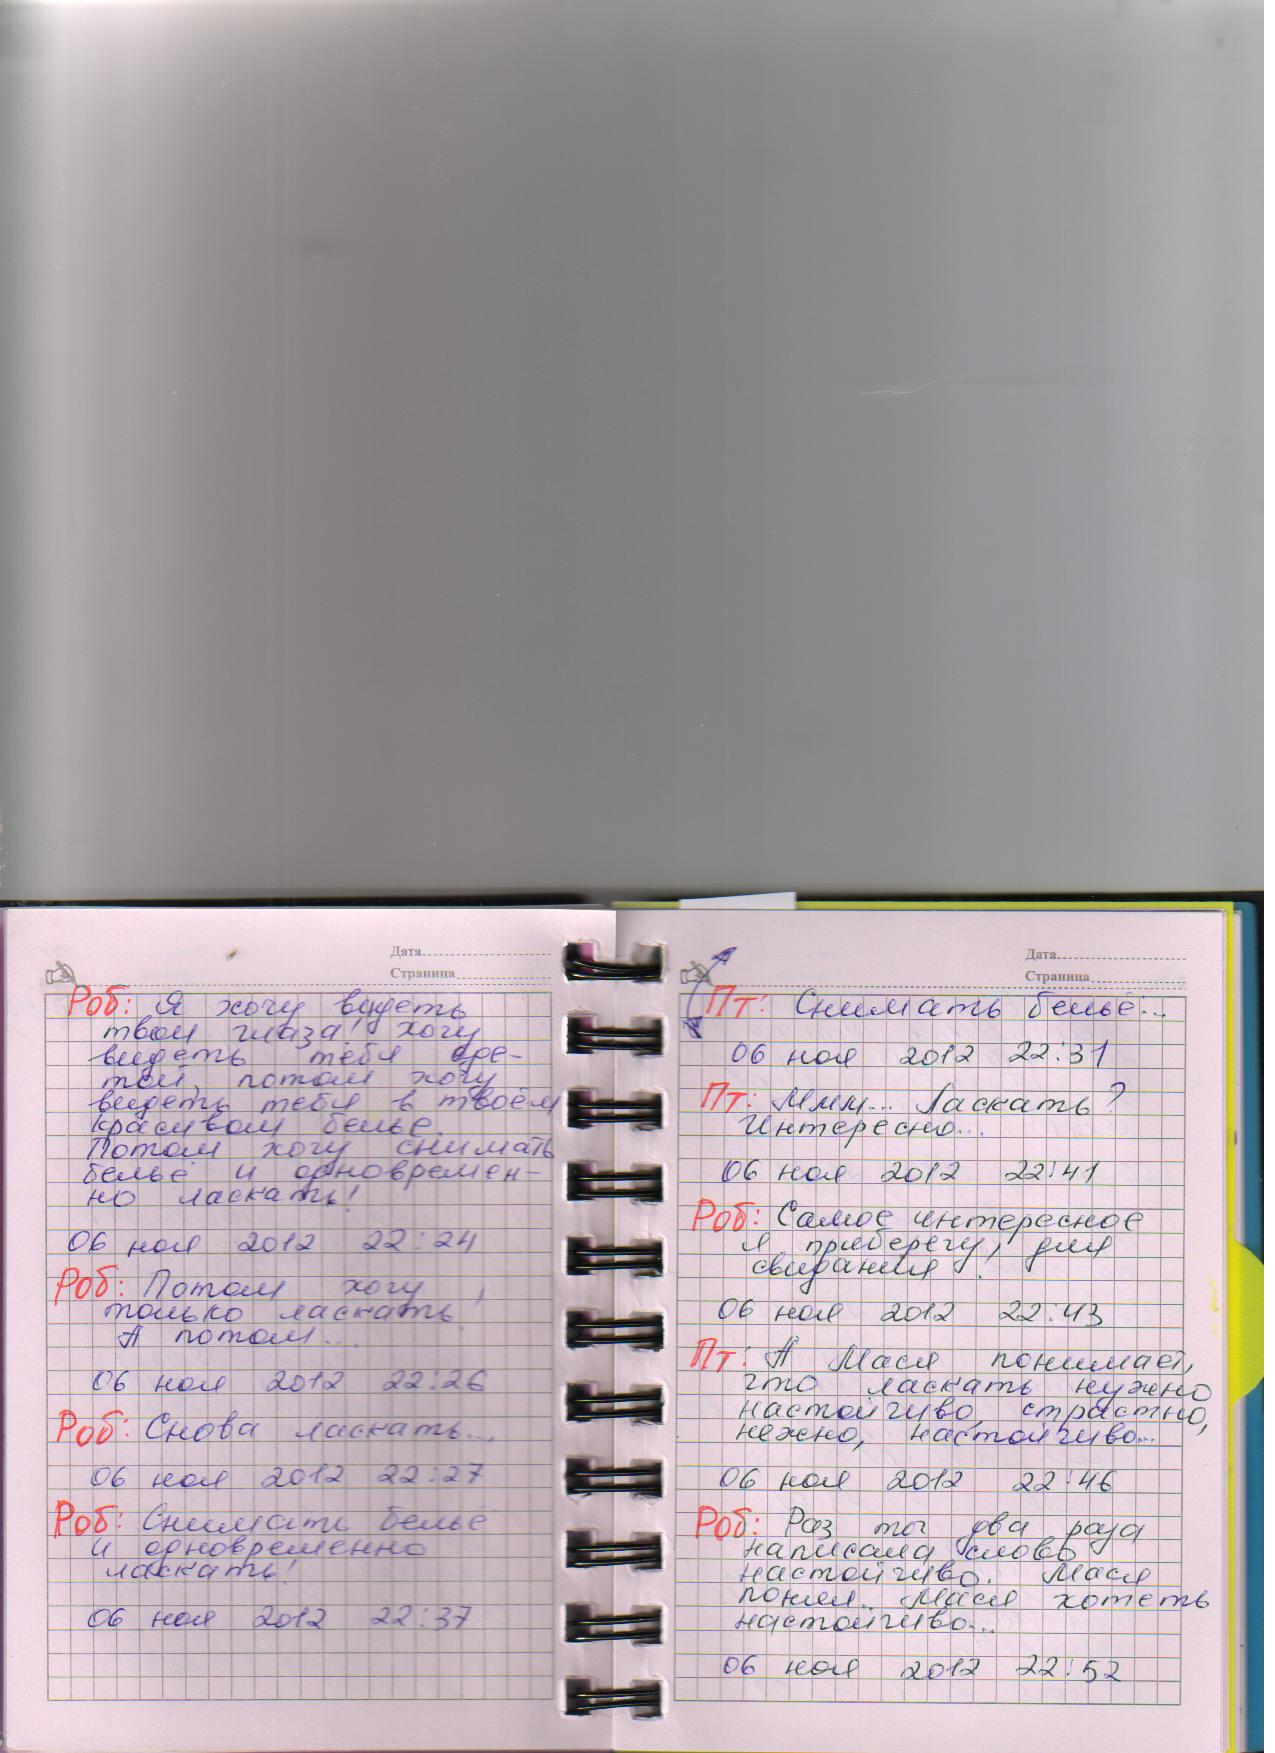 Дата
Страница
Роб: Я хочу видеть
твои глаза! хочу
видеть тебя оде-
той, потом хочу
видеть тебя в твоём
красивом белье.
Потом хочу снимать
бельё и одновремен-
но ласкать!
06 ноя 2012 22:24
Роб: Потом хочу
только ласкать!
А потом...
06 ноя 2012 22:26
Роб: Снова ласкать...
06 ноя 2012 22:27
Роб: Снимать бельё
и одновременно
ласкать!
06 ноя 2012 22:37
Дата
Страница
Пт: Снимать бельё...
06 ноя 2012 22:31
Пт: Ммм... Ласкать?
Интересно...
06 ноя 2012 22:41
Роб: Самое интересное
я приберегу, для
свидания!
06 ноя 2012 22:43
Пт: А Мася понимает,
что ласкать нужно
настойчиво, страстно,
нежно, настойчиво...
06 ноя 2012 22:46
Роб: Раз ты два раза
написала слово
настойчиво. Мася
понял.. Мася хотеть
настойчиво...
06 ноя 2012 22:52